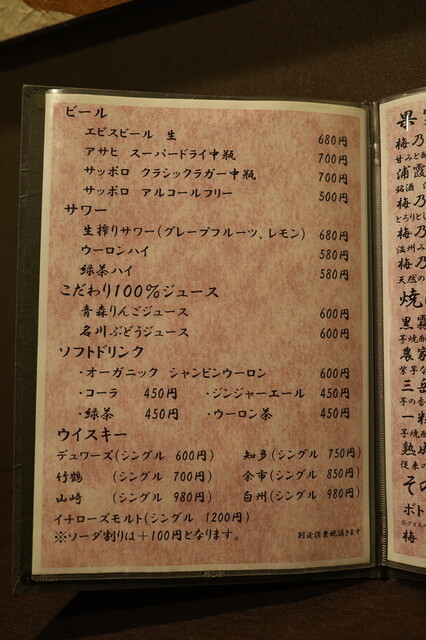 ビール
エビスビール 生 680円
アサヒ スーパードライ中瓶 700円
サッポロ クラシックラガー中瓶 700円
サッポロ アルコールフリー 500円
サワー
生搾りサワー(グレープフルーツ、レモン) 680円
ウーロンハイ 580円
緑茶ハイ 580円
こだわり100%ジュース
青森りんごジュース 600円
名川ぶどうジュース 600円
ソフトドリンク
・オーガニック シャンピンウーロン 600円
・コーラ 450円 ・ジンジャーエール 450円
・緑茶 450円 ・ウーロン茶 450円
ウイスキー
デュワーズ(シングル 600円) 知多(シングル 750円)
竹鶴 (シングル 700円) 余市(シングル 850円)
山崎 (シングル 980円) 白州(シングル 980円)
イチローズモルト(シングル 1200円)
※ソーダ割りは+100円となります。 別途消費税頂きます
果
梅乃
甘みと
浦霞
銘酒
梅乃
とろりとし
梅乃
温州み
梅乃
天然の
焼
黒霧
芋焼酎
農家
紫芋な
三岳
芋の香
一粒
芋焼酎
熟成
従来の
その
ボト
梅